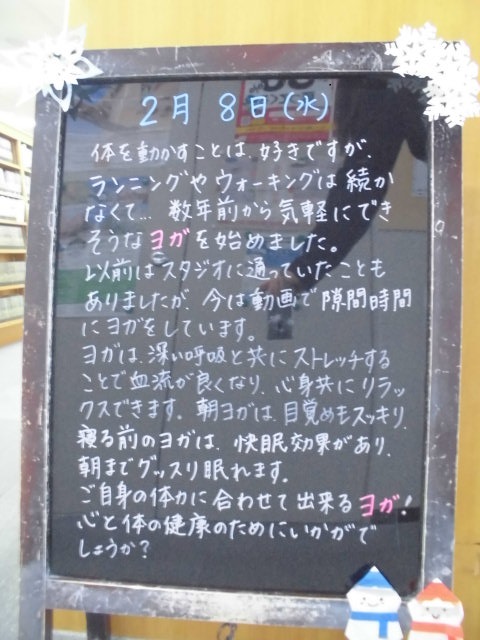 2月 8日(水)
体を動かすことは、好きですが、
ランニングやウォーキングは続か
なくて… 数年前から気軽にでき
そうなヨガを始めました。
以前はスタジオに通っていたことも
ありましたが、今は動画で隙間時間
にヨガをしています。
ヨガは、深い呼吸と共にストレッチする
ことで血流が良くなり、心身共にリラッ
クスできます。朝ヨガは、目覚めもスッキリ、
寝る前のヨガは、快眠効果があり、
朝までグッスリ眠れます。
ご自身の体力に合わせて出来るヨガ!
心と体の健康のためにいかがで
しょうか?